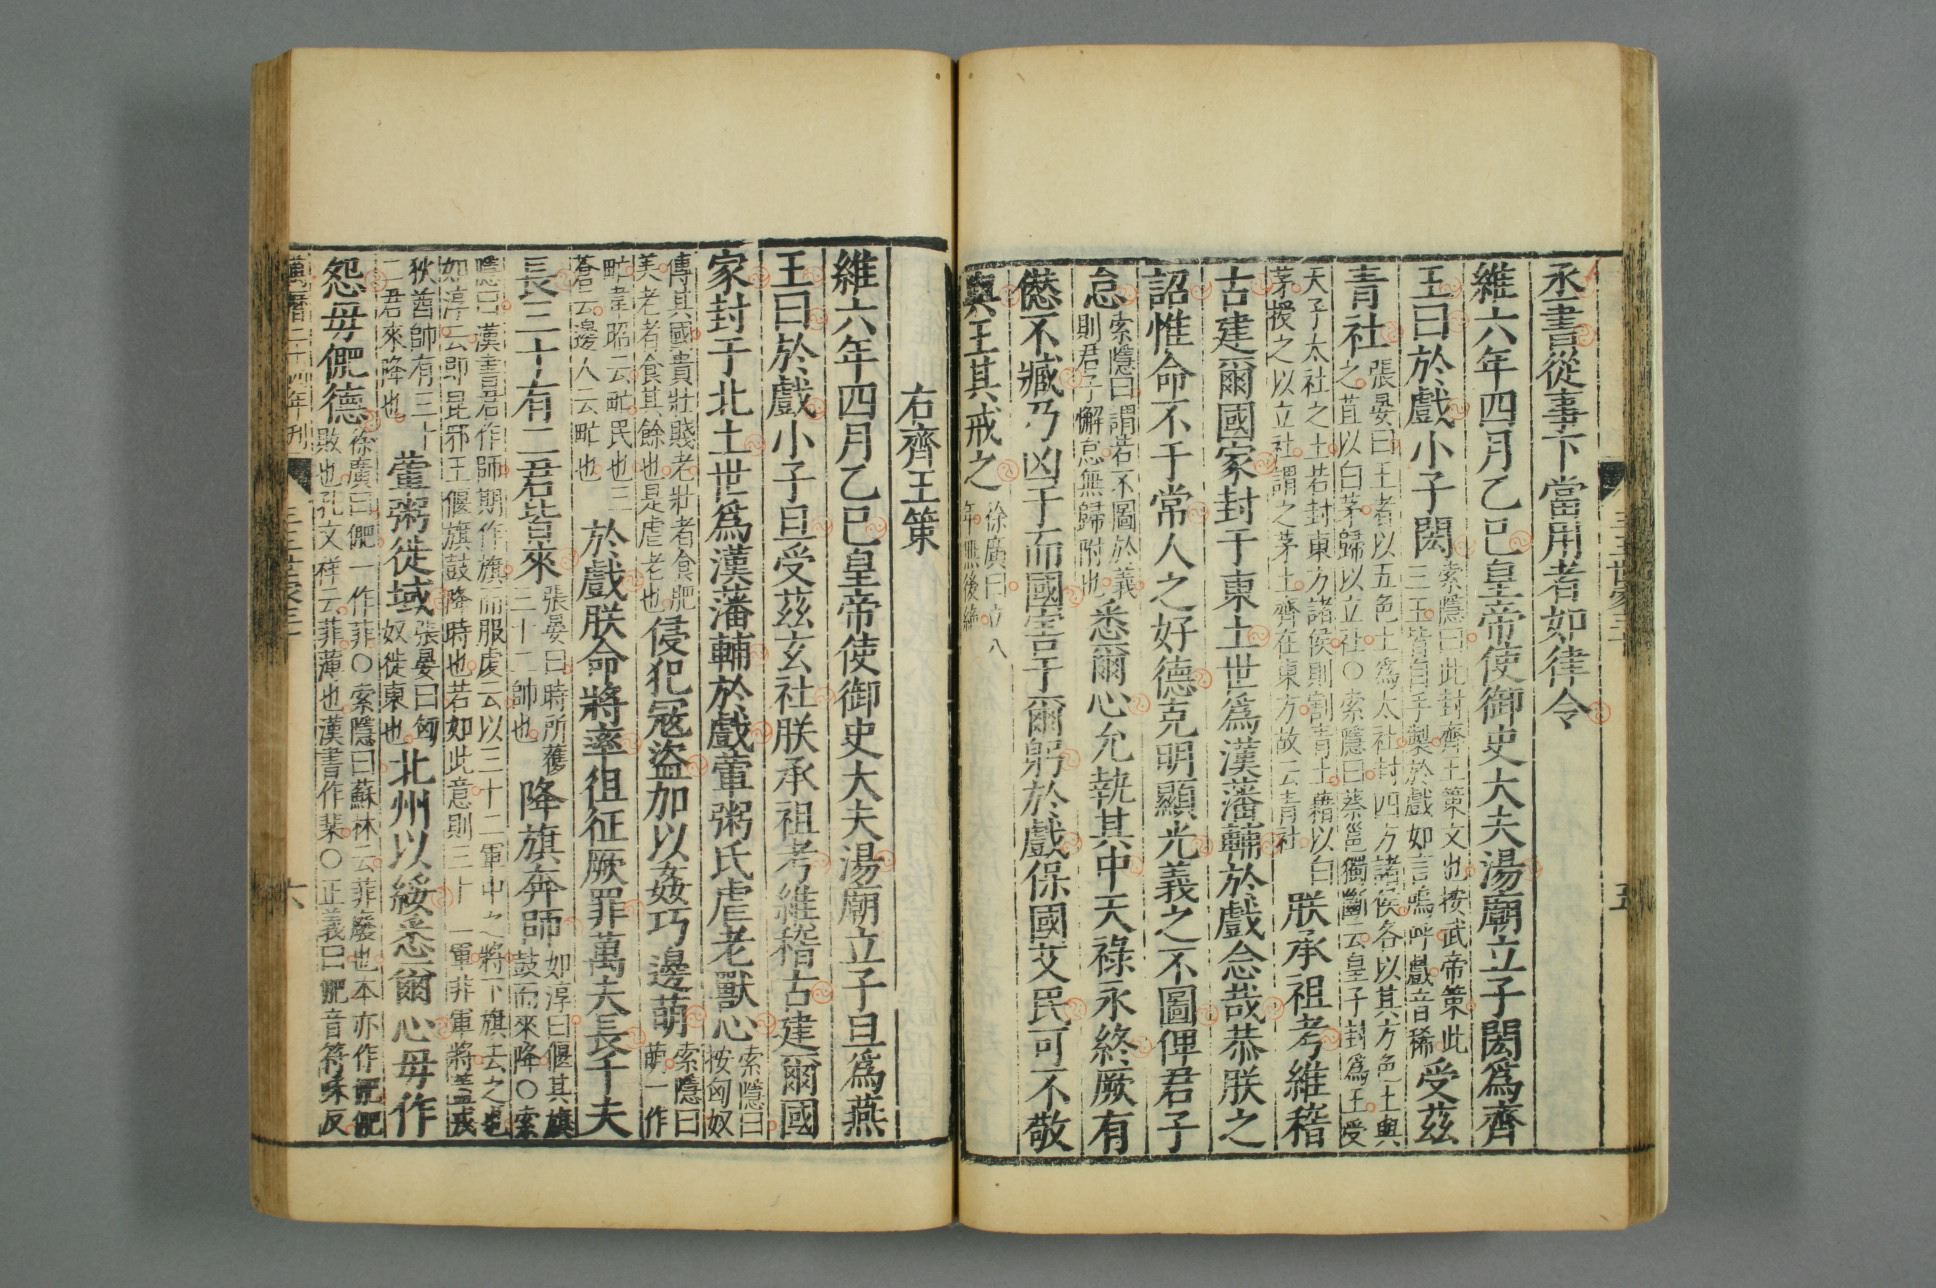 丞書從事下當用者如律令
維六年四月乙巳皇帝使御史大夫湯廟立子閎爲齊
王曰於戲小子閎
索隱曰此封齊王策文也按武帝策此
三王皆自手製於戲如言嗚呼戲音稀
受茲
青社
張晏曰王者以五色土爲太社封四方諸侯各以其方色土與
之苴以白茅歸以立社○索隱曰蔡邕獨斷云皇子封爲王受
天子太社之土若封東方諸侯則割青土藉以白
茅授之以立社謂之茅土齊在東方故云青社
朕承祖考維稽
古建爾國家封于東土世爲漢藩輔於戲念哉恭朕之
詔惟命不于常人之好德克明顯光義之不圖俾君子
怠
索隱曰謂若不圖於義
則君子懈怠無歸附也
悉爾心允執其中天祿永終厥有
𠎝不臧乃凶于而國害于爾躬於戲保國艾民可不敬
與王其戒之
徐廣曰立八
年無後絶
右齊王策
維六年四月乙巳皇帝使御史大夫湯廟立子旦爲燕
王曰於戲小子旦受茲玄社朕承祖考維稽古建爾國
家封于北土世爲漢藩輔於戲葷粥氏虐老獸心
索隱曰
按匈奴
傳其國貴壯賤老壯者食肥
美老者食其餘也是虐老也
侵犯寇盜加以姦巧邊萌
索隱曰
萌一作
甿韋昭云甿民也三
蒼云邊人云甿也
於戲朕命將率徂征厥罪萬夫長千夫
長三十有二君皆來
張晏曰時所獲
三十二帥也
降旗奔師
如淳曰偃其旗
鼓而來降○索
隱曰漢書君作師期作旗而服虔云以三十二軍中之將下旗去之也
如淳云即昆邪王偃旗鼓降時也若如此意則三十一軍非軍將蓋戎
狄酋帥有三十
二君來降也
葷粥徙域
張晏曰匈
奴徙東也
北州以綏悉爾心毋作
怨毋俷德
徐廣曰俷一作菲○索隱曰蘇林云菲廢也本亦作俷俷
敗也孔文祥云菲薄也漢書作棐○正義曰俷音符味反
三王世家三十
五
萬曆二十四年刊
三王世家三十
六